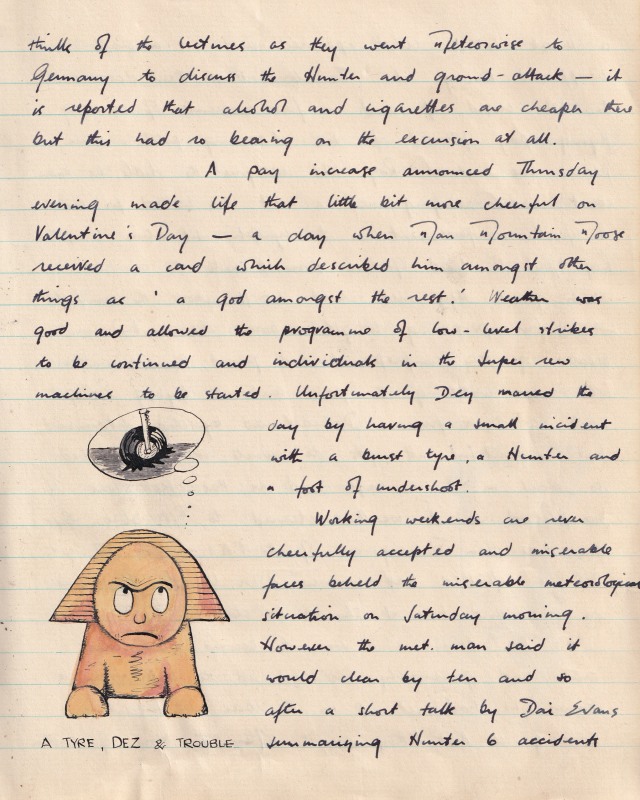 think of the lectures as they went Meteorwise to
Germany to discuss the Hunter and ground-attack — it
is reported that alcohol and cigarettes are cheaper there
but this had no bearing on the excursion at all.
A pay increase announced Thursday
evening made life that little bit more cheerful on
Valentine's Day — a day when Man Mountain Moose
received a card which described him amongst other
things as 'a god amongst the rest.' Weather was
good and allowed the programme of low-level strikes
to be continued and individuals in the super new
machines to be started. Unfortunately Dez marred the
day by having a small incident
with a burst tyre, a Hunter and
a foot of undershoot.
Working weekends are never
cheerfully accepted and miserable
faces beheld the miserable meteorological
situation on Saturday morning.
However the met. man said it
would clear by ten and so
after a short talk by Dai Evans
summarising Hunter 6 accidents
A TYRE, DEZ & TROUBLE